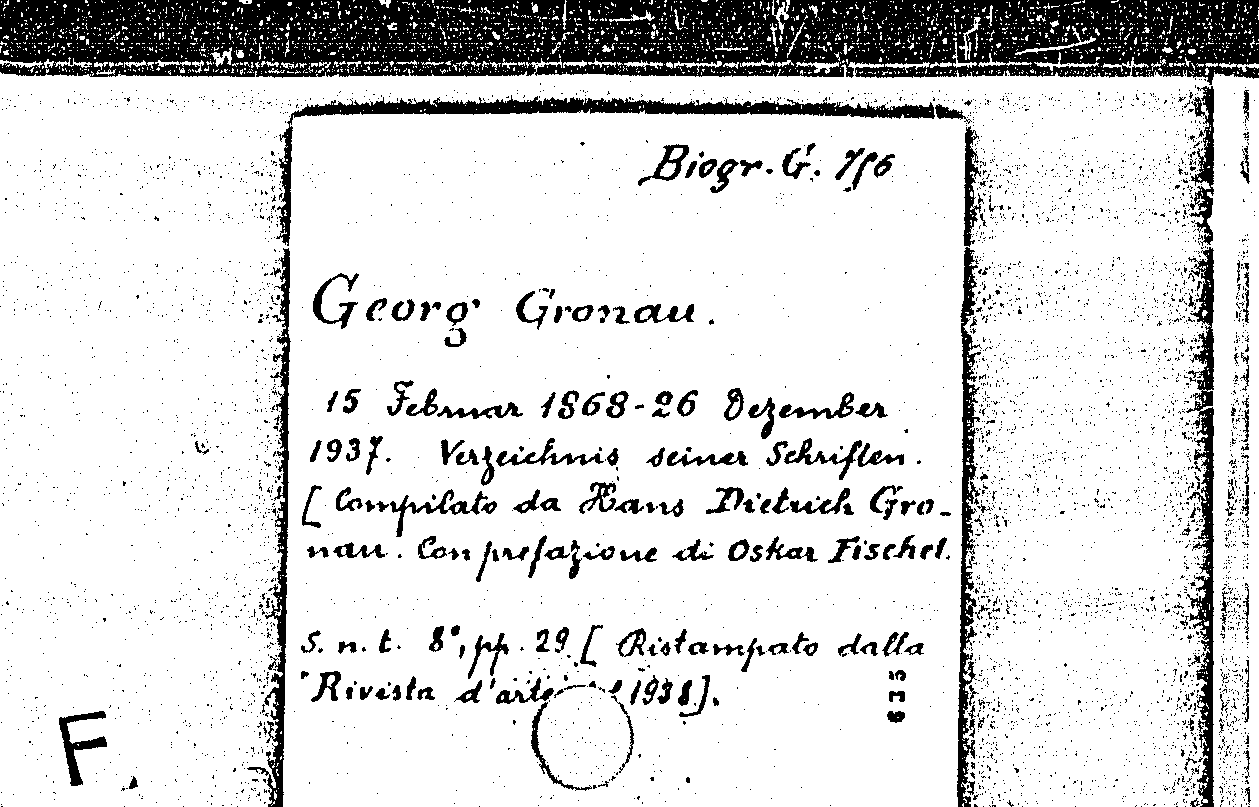 Biogr. G.
Georg Gronau.
15 Februar 1868-26 Dezember
1937. Verzeichnis seiner Schriften.
[Compilato da Hans Dietrich Gro-
nau. Con prefazione di Oskar Fischel.
S. n. t. 8°, pp. 29 [Ristampato dalla
"Rivista d'arte 1938].
635
F.